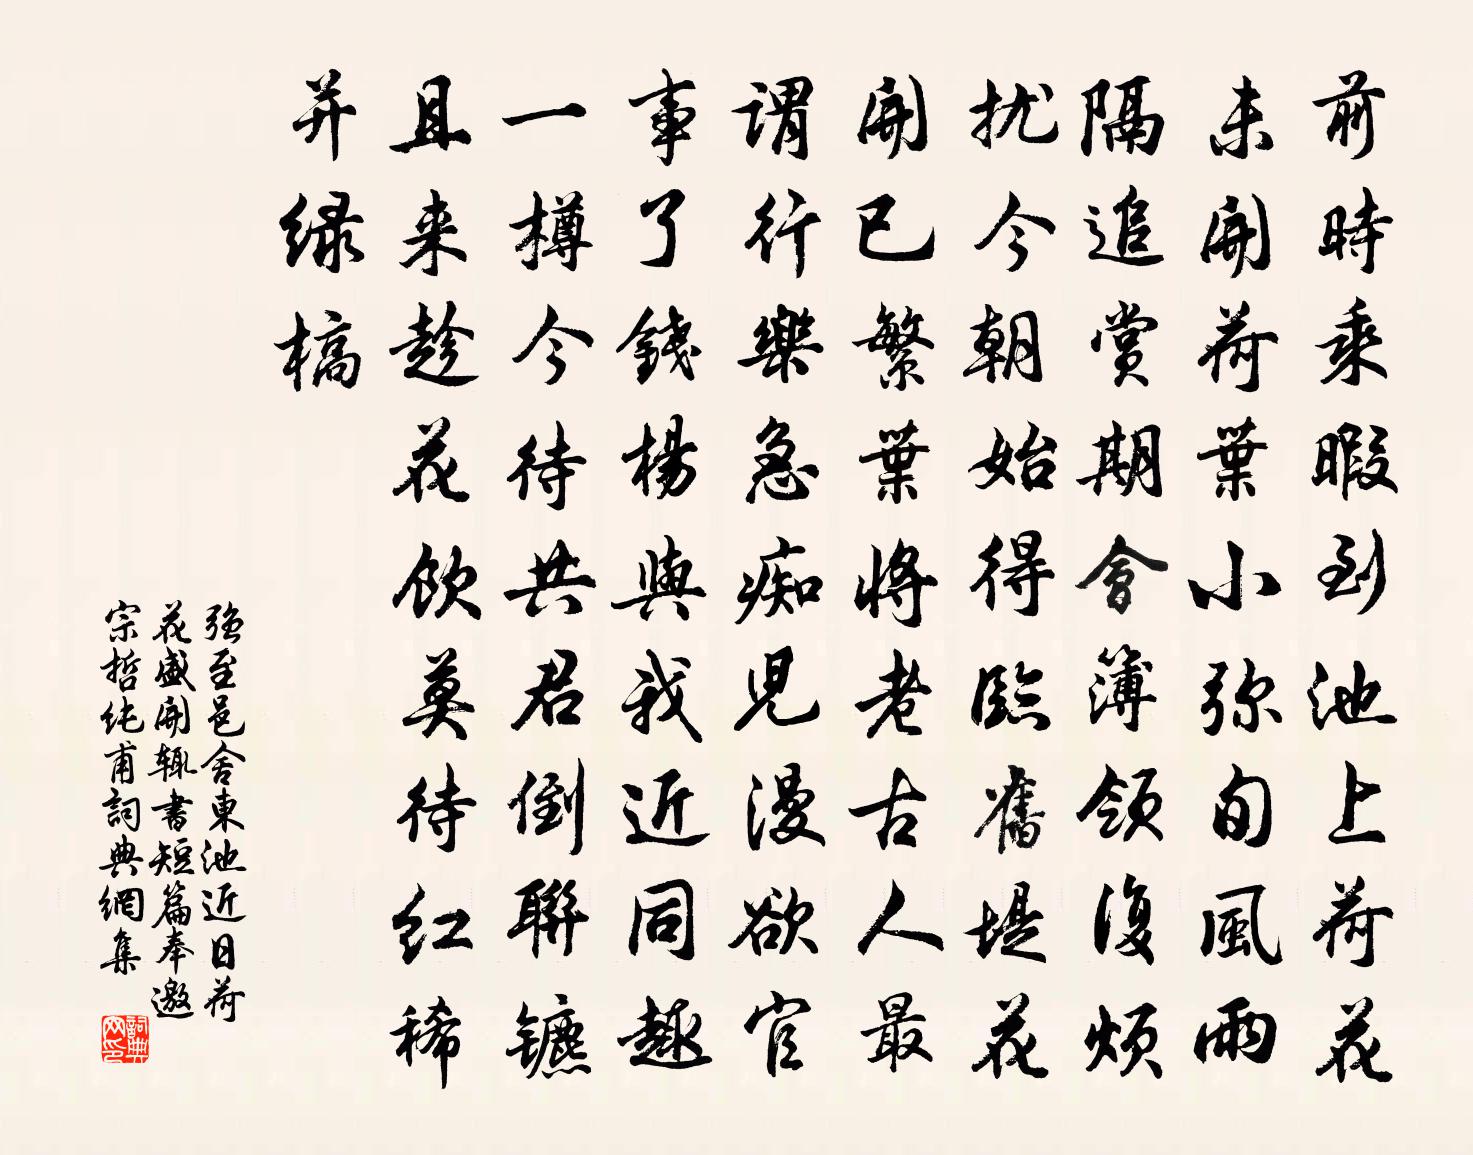 前時乘暇到池上荷花
未開荷葉小弥旬風雨
隔追賞期會簿領復煩
扰今朝始得臨舊堤花
開已繁葉將老古人最
謂行樂急痴児漫欲官
事了錢楊與我近同趣
一樽今待共君倒聯镳
且来趁花飲莫待红稀
并绿槁
强至邑舍東池近日荷
花盛開辄書短篇奉邀
宗哲纯甫詞典網集
詞典
网印